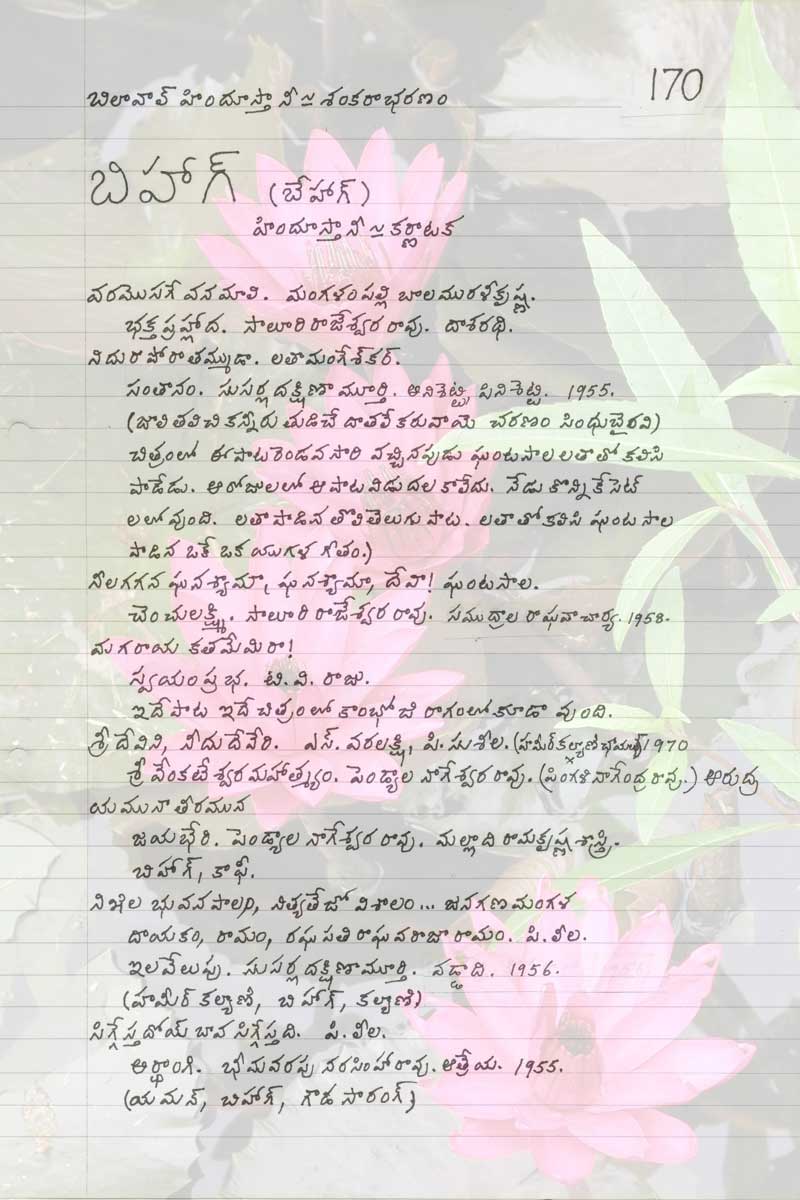 170
బిలావాల్ హిందూస్తానీ ≃ శంకరాభరణం
బిహాగ్ (బేహాగ్)
హిందూస్తానీ ≃ కర్ణాటక
వరమొసగే వనమాలి. మంగళంపల్లి బాలమురళీకృష్ణ.
భక్తప్రహ్లాద. సాలూరి రాజేశ్వరరావు. దాశరథి.
నిదురపోరా తమ్ముడా. లతామంగేశ్కర్.
సంతానం. సుసర్ల దక్షిణామూర్తి. అనిశెట్టి, పినిశెట్టి. 1955.
(జాలి తలచి కన్నీరు తుడిచే దాతలే కరువాయె చరణం సింధుభైరవి)
చిత్రంలో ఈ పాట రెండవసారి వచ్చినపుడు ఘంటసాల లతాతో కలిసి
పాడేడు. ఆ రోజులలో ఆ పాట విడుదల కాలేదు. నేడు కొన్ని కేసెట్
లలో వుంది. లతా పాడిన తొలి తెలుగు పాట. లతాతో కలిసి ఘంటసాల
పాడిన ఒకే ఒక యుగళ గీతం.)
నీలగగన ఘనశ్యామా, ఘనశ్యామా, దేవా! ఘంటసాల.
చెంచులక్ష్మి. సాలూరి రాజేశ్వరరావు. సముద్రాల రాఘవాచార్య. 1958.
మగరాయ కతమేమిరా!
స్వయంప్రభ. టి.వి. రాజు.
ఇదే పాట ఇదే చిత్రంలో కాంభోజి రాగంలో కూడా వుంది.
శ్రీదేవిని, నీదు దేవేరి. ఎస్. వరలక్ష్మి, పి.సుశీల. (హమీర్ కల్యాణి 1970
శ్రీ వేంకటేశ్వర మహాత్మ్యం. పెండ్యాల నాగేశ్వరరావు. (పింగళి నాగేంద్రరావు.) ఆరుద్ర
యమునా తీరమున
జయభేరి. పెండ్యాల నాగేశ్వరరావు. మల్లాది రామకృష్ణ శాస్త్రి.
బిహాగ్, కాఫీ.
నిఖిల భువనపాలం, నిత్యతేజో విశాలం... జనగణ మంగళ
దాయకం, రామం, రఘుపతి రాఘవ రాజారామం. పి.లీల.
ఇలవేలుపు. సుసర్ల దక్షిణామూర్తి. వడ్డాది. 1956.
(హమీర్ కల్యాణి, బిహాగ్, కల్యాణి)
సిగ్గేస్తదోయ్ బావ సిగ్గేస్తది. పి.లీల.
అర్ధాంగి. భీమవరపు నరసింహారావు. ఆత్రేయ. 1955.
(యమన్, బిహాగ్, గౌడ సారంగ్)